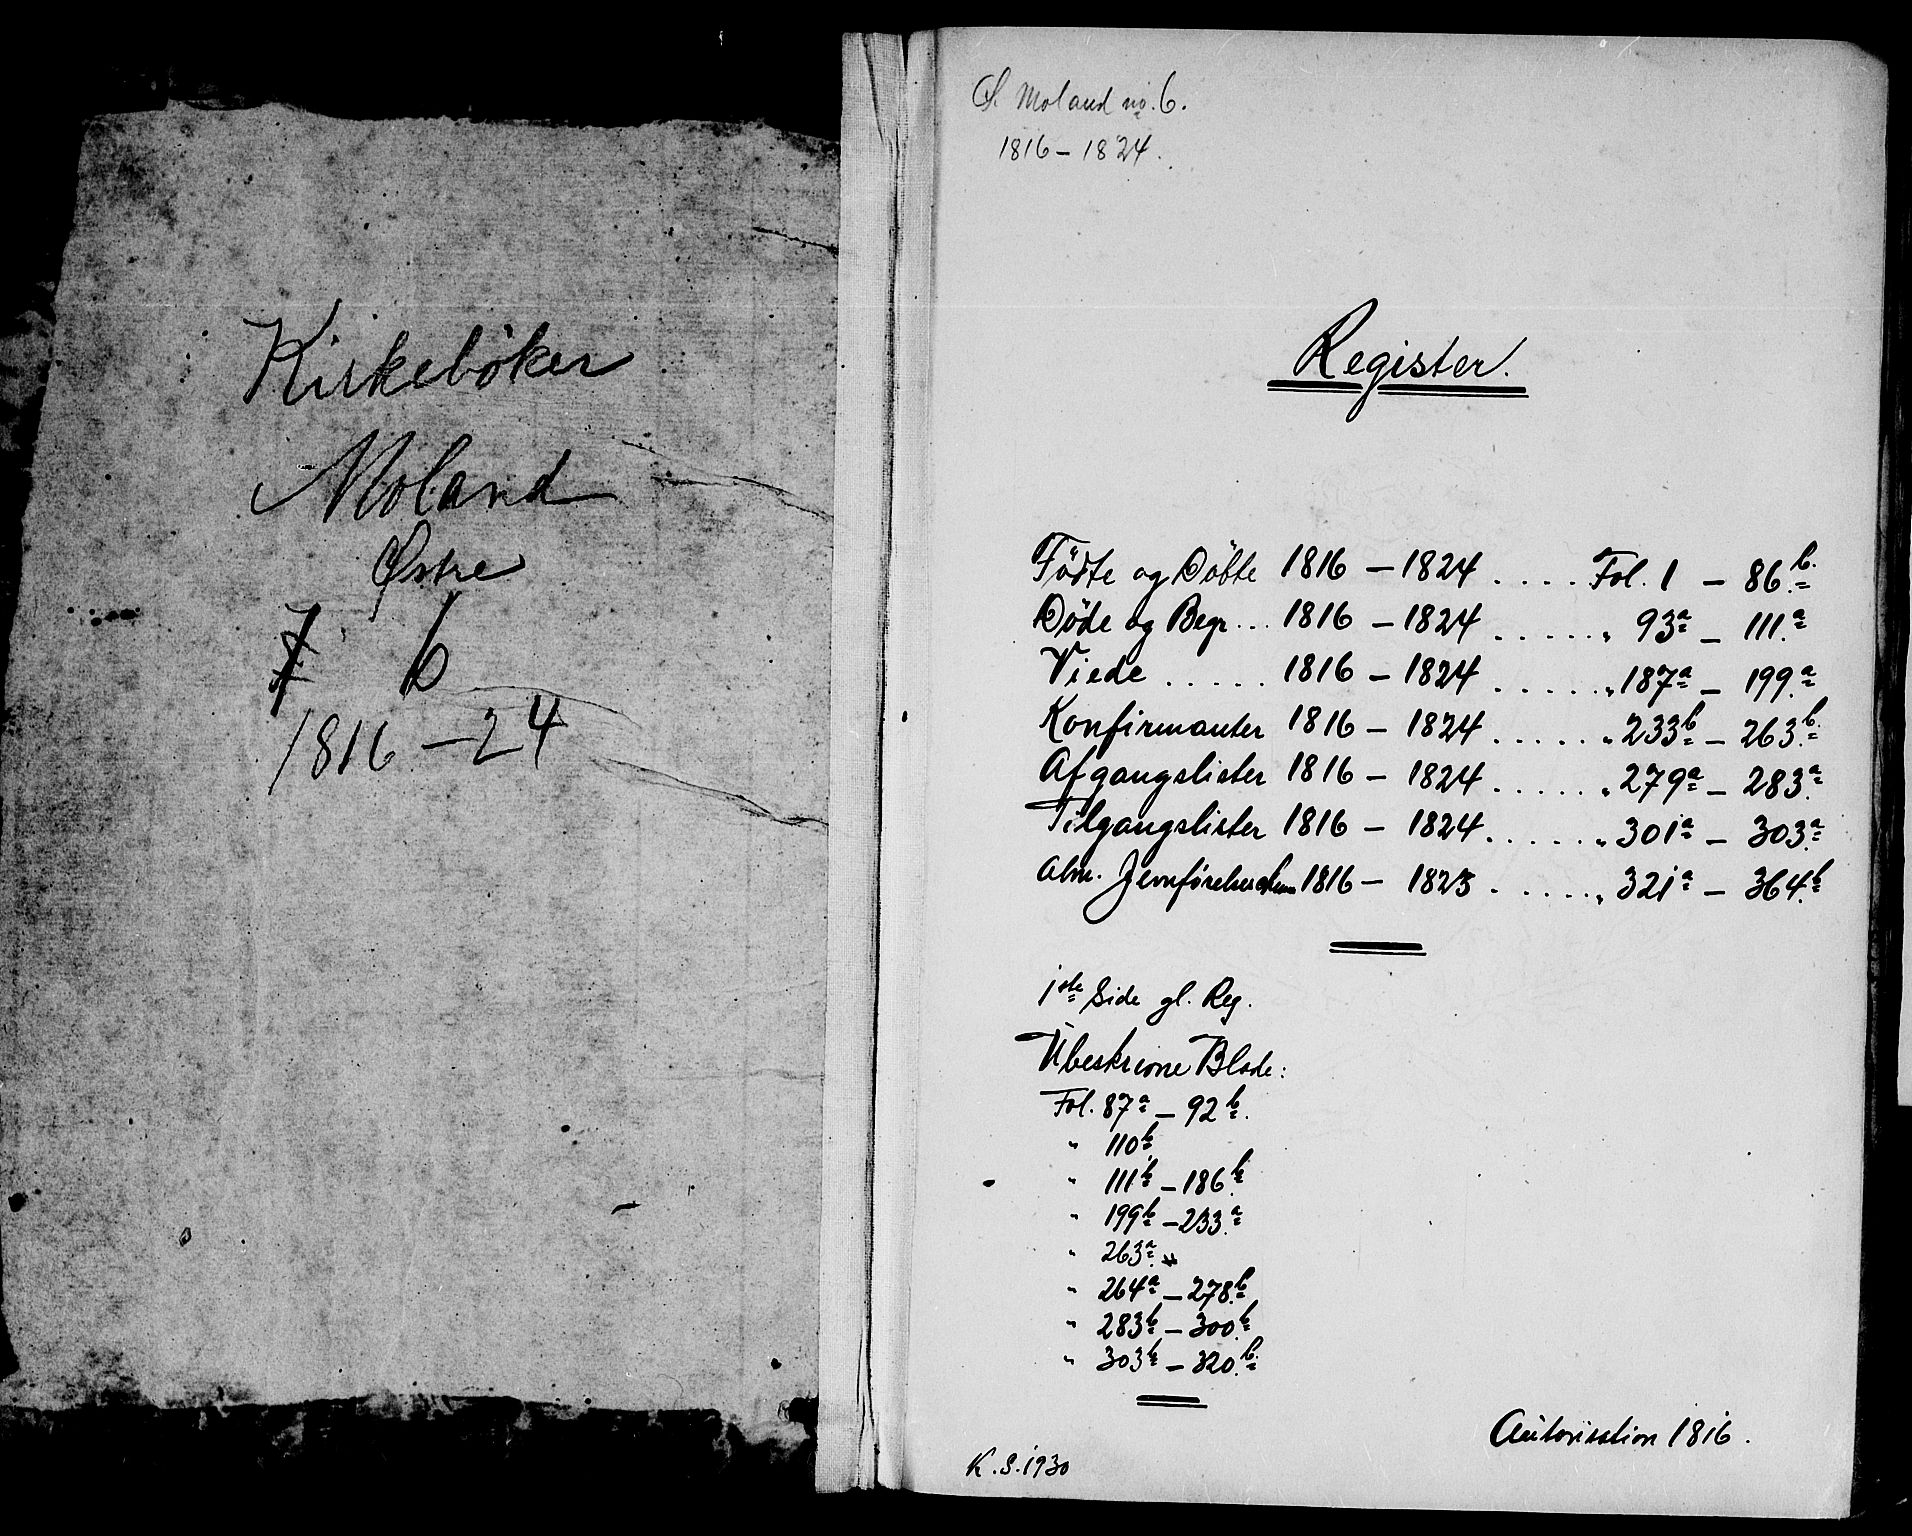 Kirkebøker
Moland
Østre
6
1816 – 24
Ø. Moland no. 6.
1816 – 1824.
Register.
Födte og Döbte 1816 – 1824 .... Fol. 1 – 86b.
Döde og Begr... 1816 – 1824 ...... " 93a – 111.a
Viede ..... 1816 – 1824 ...... " 187a – 199.a
Konfirmanter 1816 – 1824 ...... " 233b – 263b.
Afgangslister 1816 – 1824 ...... " 279a – 283.a
Tilgangslister 1816 – 1824 ...... " 301a – 303.a
Alm. Jevnförelses 1816 – 1823 ...... " 321a – 364.b
1ste Side gl. Reg.
Ubeskrevne Blade:
Fol. 87a – 92b.
" 110b
" 111b – 186b.
" 199b – 233.a
" 263a.
" 264a – 278.b
" 283b – 300.b
" 303b – 320.b
Autorisation 1816.
K. S. 1930